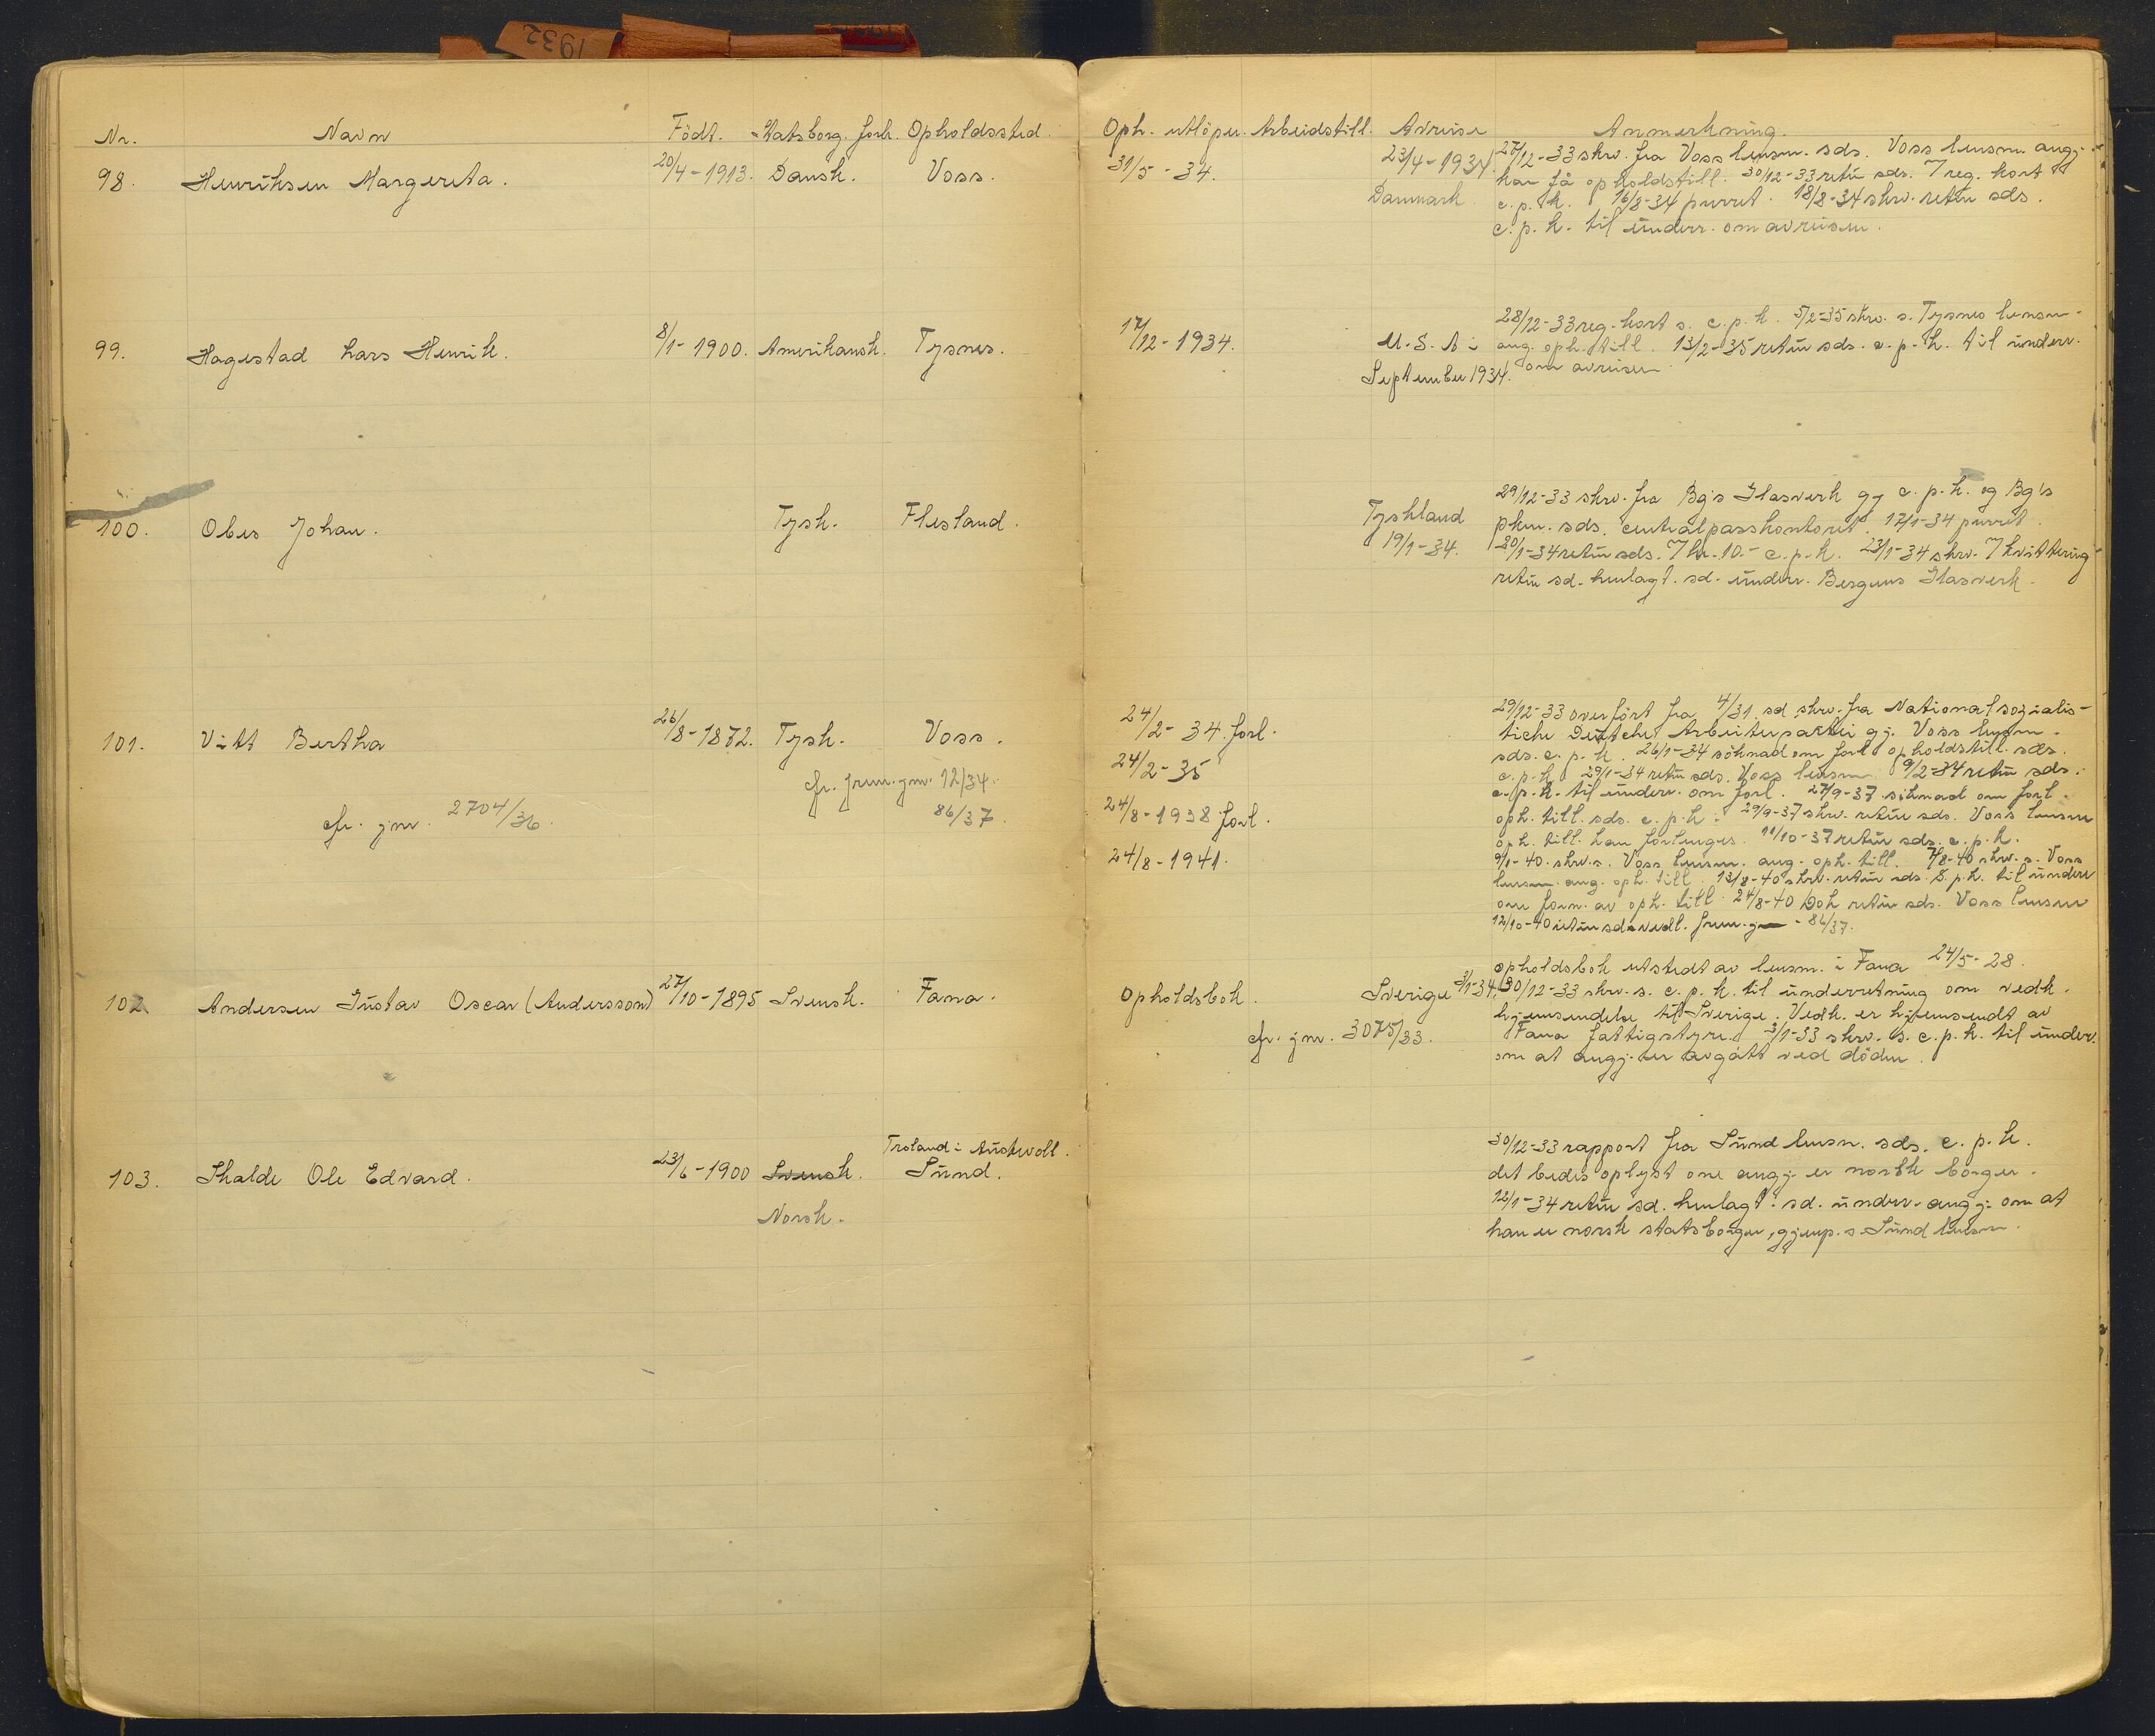 1932
Nr. Navn Födt. Statsborg. forh. Opholdssted.
98. Henriksen Margereta. 20/4-1913. Dansk. Voss.
99. Hagestad Lars Henrik. 8/1-1900. Amerikansk. Tysnes.
100. Obes Johan. Tysk. Flesland.
101. Vitt Bertha 26/8-1872. Tysk. Voss.
cfr. frem. jnr. 12/34.
cfr. jnr. 2704/36. 86/37.
102. Andersen Gustav Oscar (Andersson) 27/10-1895 Svensk. Fana.
Troland i Austevoll.
103. Skalde Ole Edvard. 23/6-1900 Svensk. Sund.
Norsk.
Oph. utlöper. Arbeidstill. Avreise Anmerkning.
31/5-34. 23/4-1934. 27/12-33 skrv. fra Voss lensm. sds. Voss lensm. angj.
kan få opholdstill. 30/12-33 retur sds. 7 reg. kort
Danmark c.p.k. 16/8-34 purret. 18/8-34 skrv. retur sds.
c.p.k. til underr. om avreisen.
28/12-33 reg. kort s. c.p.k. 5/2-35 skrv. s. Tysnes lensm.
17/12-1934. U.S.A i ang. oph. till. 13/2-35 retur sds. c.p.k. til underr.
September 1934. om avreisen.
29/12-33 skrv. fra Bg's Glasverk gj c.p.k. og Bg's
Tyskland pkm. sds. centralpasskontoret. 17/1-34 purret.
19/1-34. 20/1-34 retur sds. 7 kr. 10.- c.p.k. 23/1-34 skrv. 7 kvittering
retur sd. henlagt. sd. underr. Bergens Glasverk.
29/12-33 overfört fra 4/31 sd skrv. fra Nationalsozialis-
24/2-34. forl. tiche Deutche Arbeiterpartei gj. Voss lensm.
24/2-35 sds. c.p.k. 26/1-34 söknad om forl. opholdstill. sds.
c.p.k. 29/1-34 retur sds. Voss lensm 9/2-34 retur sds.
24/8-1938 forl. c.p.k. til underr. om forl. 27/9-37 söknad om forl.
oph. till. sds. c.p.k. 29/9-37 skrv. retur sds. Voss lensm
oph. till. kan forlenges. 11/10-37 retur sds. c.p.k.
24/8-1941. 9/1-40. skrv. s. Voss lensm. ang. oph. till. 7/8-40 skrv. s. Voss
lensm. ang. oph. till. 13/8-40 skrv. retur sds. S.p.k. til underr
om forn. av oph. till. 24/8-40 Bok retur sds. Voss lensm
12/10-40 retur sd. vedl. frem. j - 86/37.
opholdsbok utstedt av lensm. i Fana 24/5-28.
Opholdsbok. Sverige 3/1-34. 30/12-33 skrv. s. c.p.k. til underretning om vedk.
hjemsendelse til Sverige. Vedk. er hjemsendt av
cfr. jnr. 3075/33. Fana fattigstyre. 3/1-33 skrv. s. c.p.k. til underr.
om at angj. er avgått ved döden.
30/12-33 rapport fra Sund lensm. sds. c.p.k.
det bedes oplyst om angj. er norsk borger.
12/1-34 retur sd. henlagt. sd. underr. angj. om at
han er norsk statsborger, gjenp. s. Sund lensm.